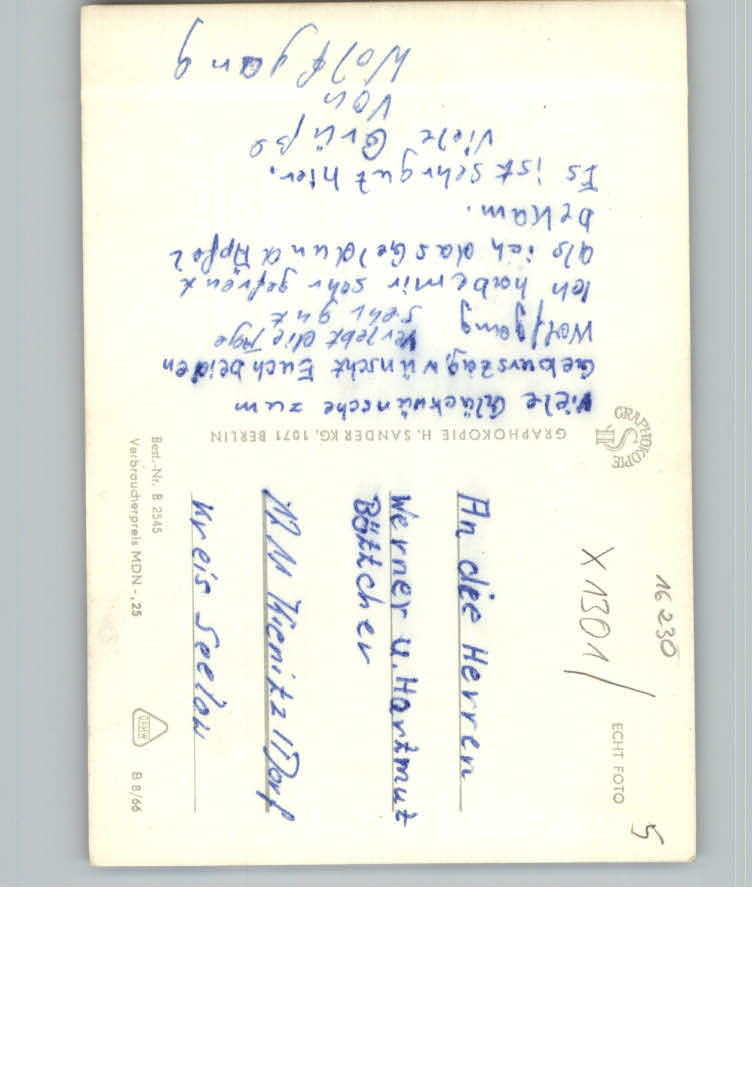 Viele Glückwünsche zum
Geburszag, wünscht Euch beiden
Wolfgang Verlebt die Tage
sehr gut
Ich habe mir sehr gefreut
als ich das Geld und Äpfel
bekam.
Es ist sehr gut hier.
Viele Grüße
von
Wolfgang
GRAPHOKOPIE H. SANDER KG, 1071 BERLIN
GRAPHOKOPIE
16 230
X 1301/
ECHT FOTO
5
An die Herren
Werner u. Hartmut
Böttcher
1211 Kienitz/Dorf
Kreis Seelow
Best.-Nr. B 2545
Verbraucherpreis MDN -,25
B 8/66